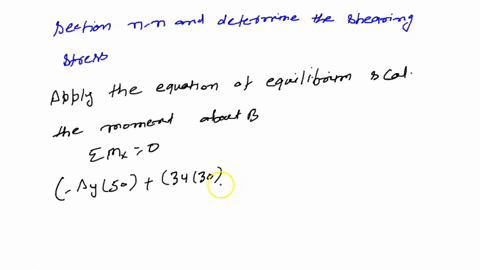 Section n-n and determine the shearing
stress
Apply the equation of equilibrium & cal.
the moment about B
ΣMx=0
(-Ay(50) + (34(30)